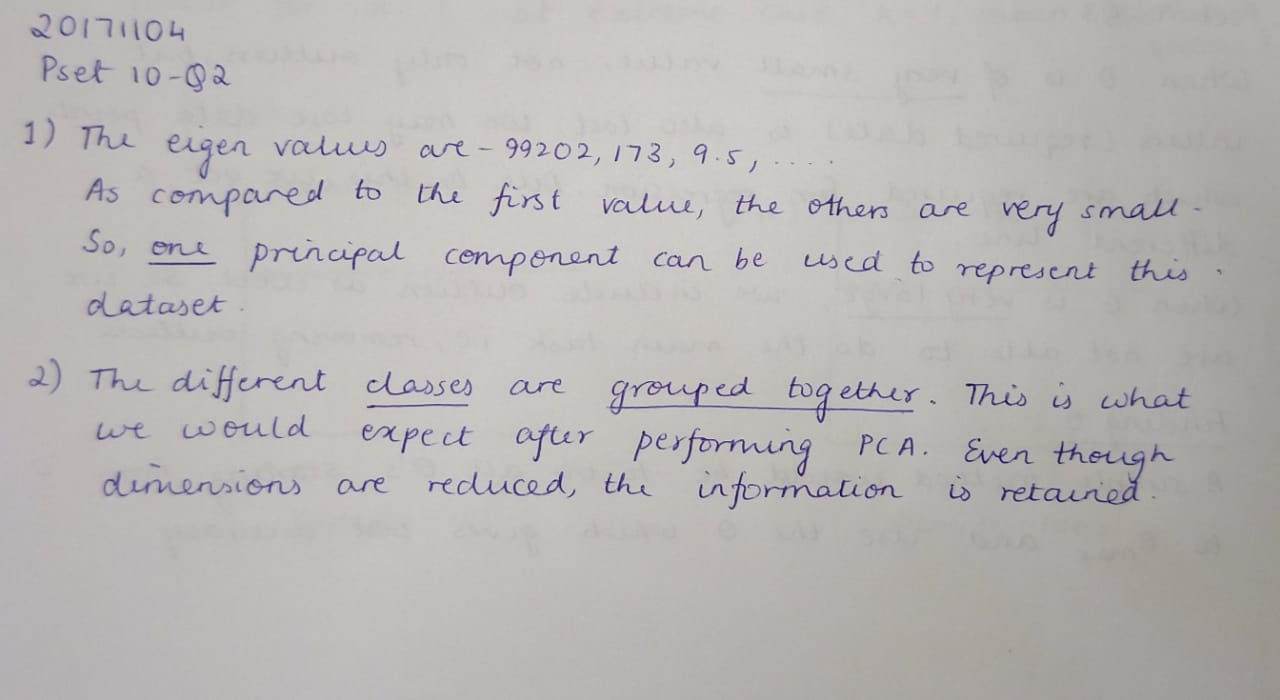 20171104
Pset 10-Q2
1) The eigen values are - 99202, 173, 9.5, ....
As compared to the first value, the others are very small.
So, one principal component can be used to represent this
dataset.
2) The different classes are grouped together. This is what
we would expect after performing PCA. Even though
dimensions are reduced, the information is retained.